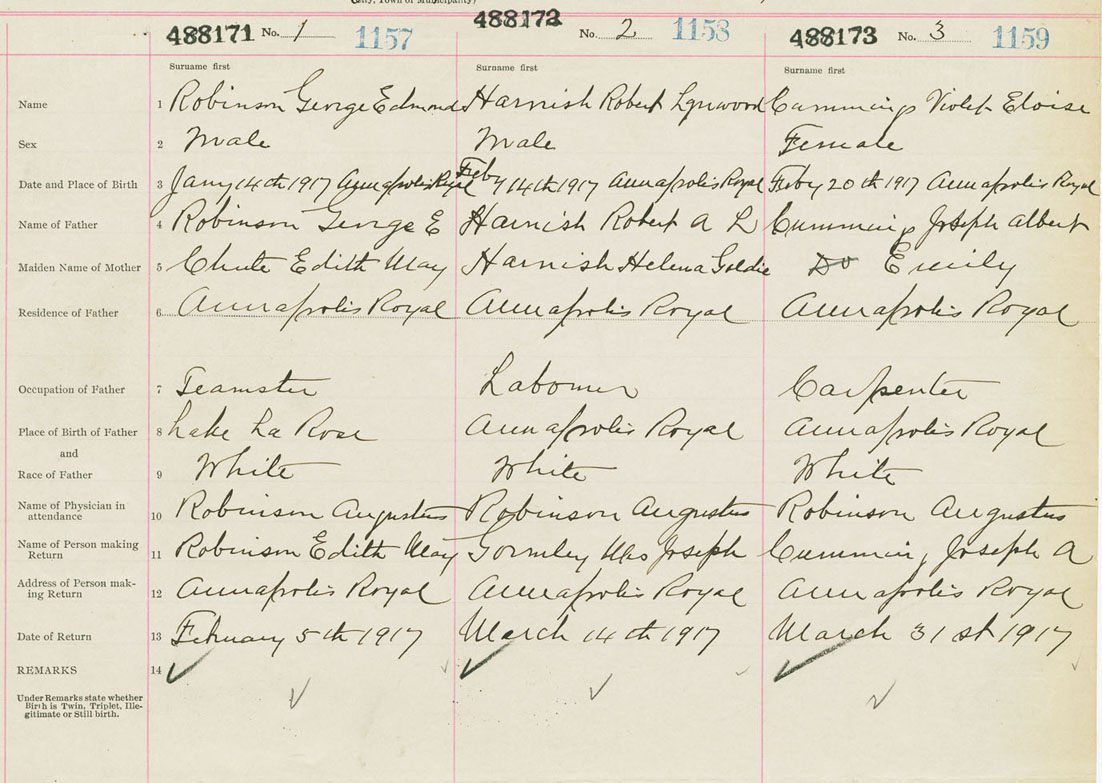 (City, Town or Municipality)
488171 No. 1 1157 488172 No. 2 1158 488173 No. 3 1159
Surname first Surname first Surname first
Name 1 Robinson George Edmond Harnish Robert Lynwood Cumming Violet Eloise
Sex 2 Male Male Female
Date and Place of Birth 3 Jany 14th 1917 Annapolis Royal Feby 14th 1917 Annapolis Royal Feby 20th 1917 Annapolis Royal
Name of Father 4 Robinson George E Harnish Robert A L Cumming Joseph Albert
Maiden Name of Mother 5 Chute Edith May Harnish Helena Goldie Do Emily
Residence of Father 6 Annapolis Royal Annapolis Royal Annapolis Royal
Occupation of Father 7 Teamster Laborer Carpenter
Place of Birth of Father 8 Lake La Rose Annapolis Royal Annapolis Royal
and
Race of Father 9 White White White
Name of Physician in
attendance 10 Robinson Augustus Robinson Augustus Robinson Augustus
Name of Person making
Return 11 Robinson Edith May Gormley Mrs Joseph Cumming Joseph A
Address of Person mak-
ing Return 12 Annapolis Royal Annapolis Royal Annapolis Royal
Date of Return 13 February 5th 1917 March 14th 1917 March 31st 1917
REMARKS 14
Under Remarks state whether
Birth is Twin, Triplet, Ille-
gitimate or Still birth.